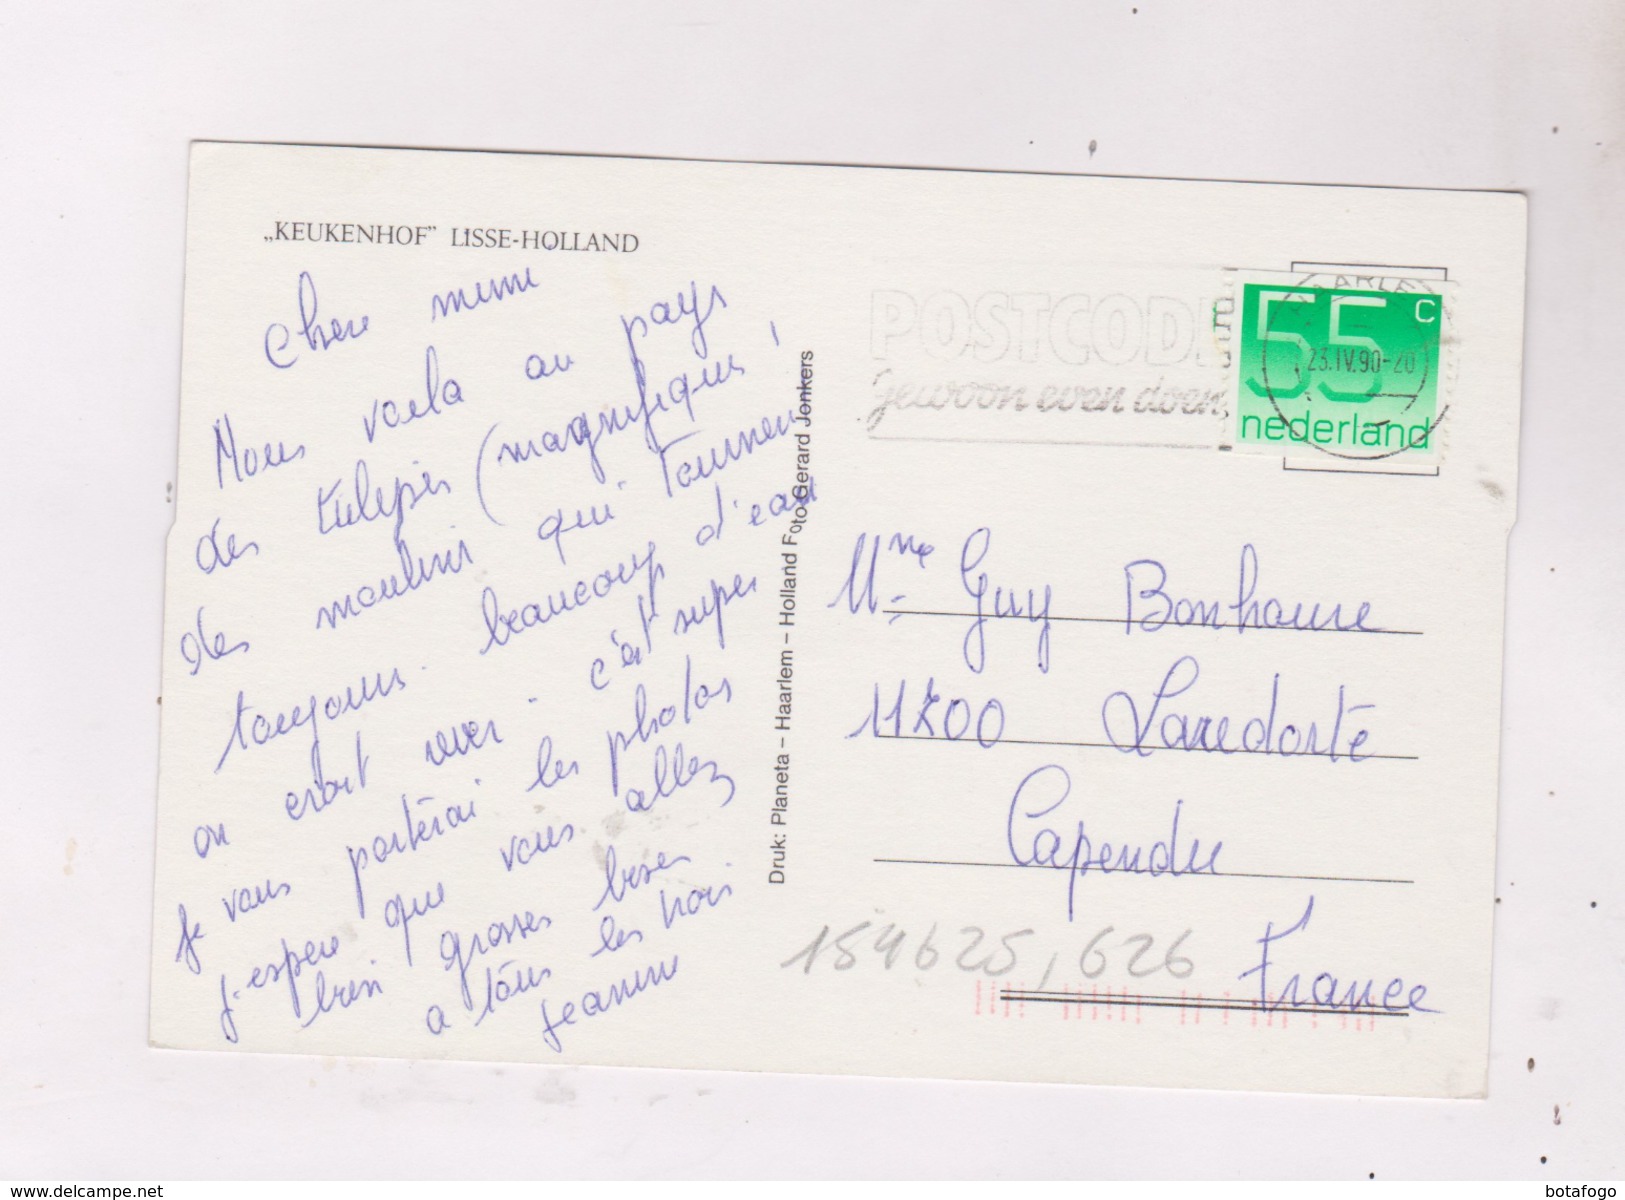 „KEUKENHOF” LISSE-HOLLAND
Chere mimi
Nous voila au pays
des tulipes (magnifique,
des moulins qui tournent
toujours. beaucoup d'eau
on croit rever. c'est super
je vous porterai les photos
j'espere que vous allez
bien grosses bises
a tous les trois
Jeannine
Druk: Planeta – Haarlem – Holland Foto Gerard Jonkers
POSTCODE
gewoon even doen
HAARLEM
23.IV.90-20
55 c
nederland
Mme Guy Bonhoure
11700 Laredorte
Capendu
France
154625,626
delcampe.net
botafogo